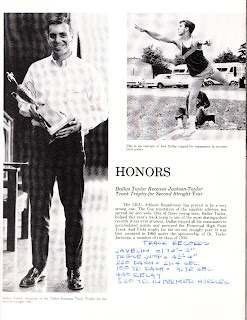 This is an example of how Dallas topped his teammates in accumu-
lated points.
HONORS
Dallas Taylor Receives Jackson-Taylor
Track Trophy for Second Straight Year
The Athletic Department has proved to be a very
strong one. The fine reputation of the capable athletes has
spread far and wide. One of these young men, Dallas Taylor,
helped this year's track team to one of the most distinguished
records it has ever attained. Dallas topped all his teammates in
accumulated points and received the Perpetual High Point
Track And Field trophy for the second straight year. It was
first awarded in 1960 under the sponsorship of Dr. Taylor
Jackman, a member of the class of 1925.
TRACK RECORDS
JAVELIN
TRIPLE JUMP = 45'-6"
220 DASH = 21.4 SEC.
100 YD DASH = SEC
440 RELAY
330 YD. INTERMED HURDLES
Dallas Taylor, recipient of the Taylor Jackman Track Trophy for the
second straight year.